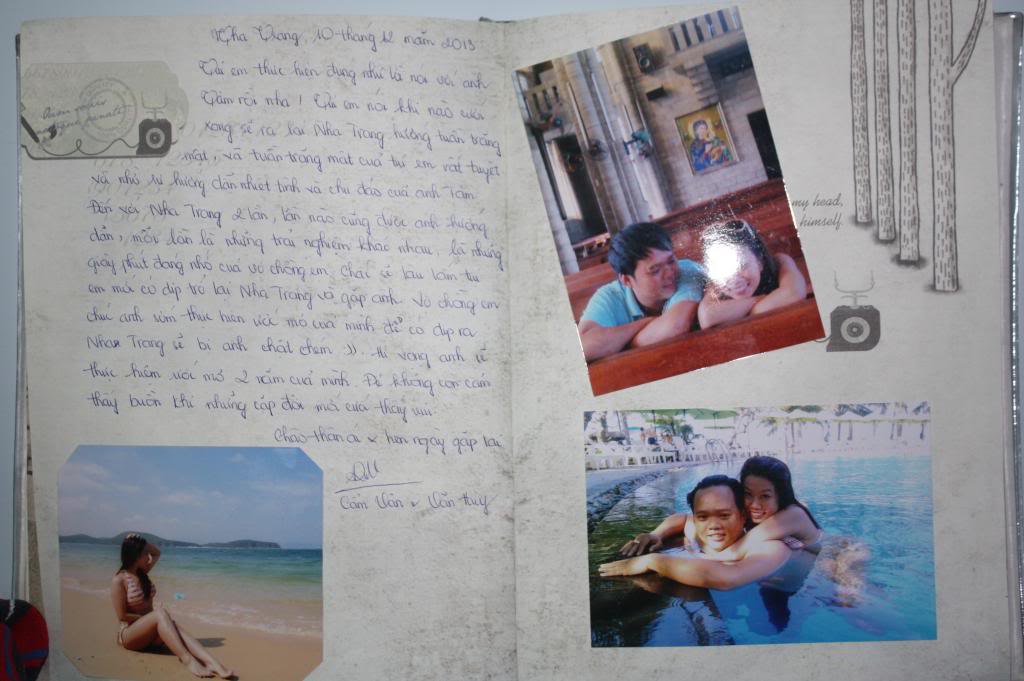 Nha Trang, 10 tháng 12 năm 2013
Tụi em thực hiện đúng như là nói với anh
Tâm rồi nha! Tụi em nói khi nào cưới
xong sẽ ra lại Nha Trang hưởng tuần trăng
mật, và tuần trăng mật của tụi em rất tuyệt
và nhờ sự hướng dẫn nhiệt tình và chu đáo của anh Tâm.
Đến với Nha Trang 2 lần, lần nào cũng được anh hướng
dẫn, mỗi lần là những trải nghiệm khác nhau, là những
giây phút đáng nhớ của vợ chồng em. Chắc sẽ lâu lắm tụi
em mới có dịp trở lại Nha Trang và gặp anh. Vợ chồng em
chúc anh sớm thực hiện ước mơ của mình để có dịp ra
Nha Trang sẽ bị anh chặt chém )). Hi vọng anh sẽ
thực hiện ước mơ 2 năm của mình. Để không còn cảm
thấy buồn khi những cặp đôi mới cưới
Chào thân ái & hẹn ngày gặp lại
Cẩm Vân & Văn Huy
my head,
himself.